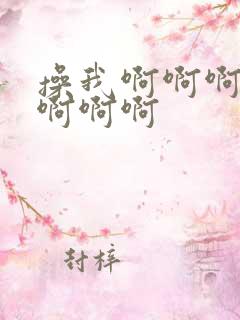 操我 啊啊啊
啊啊啊
封梓